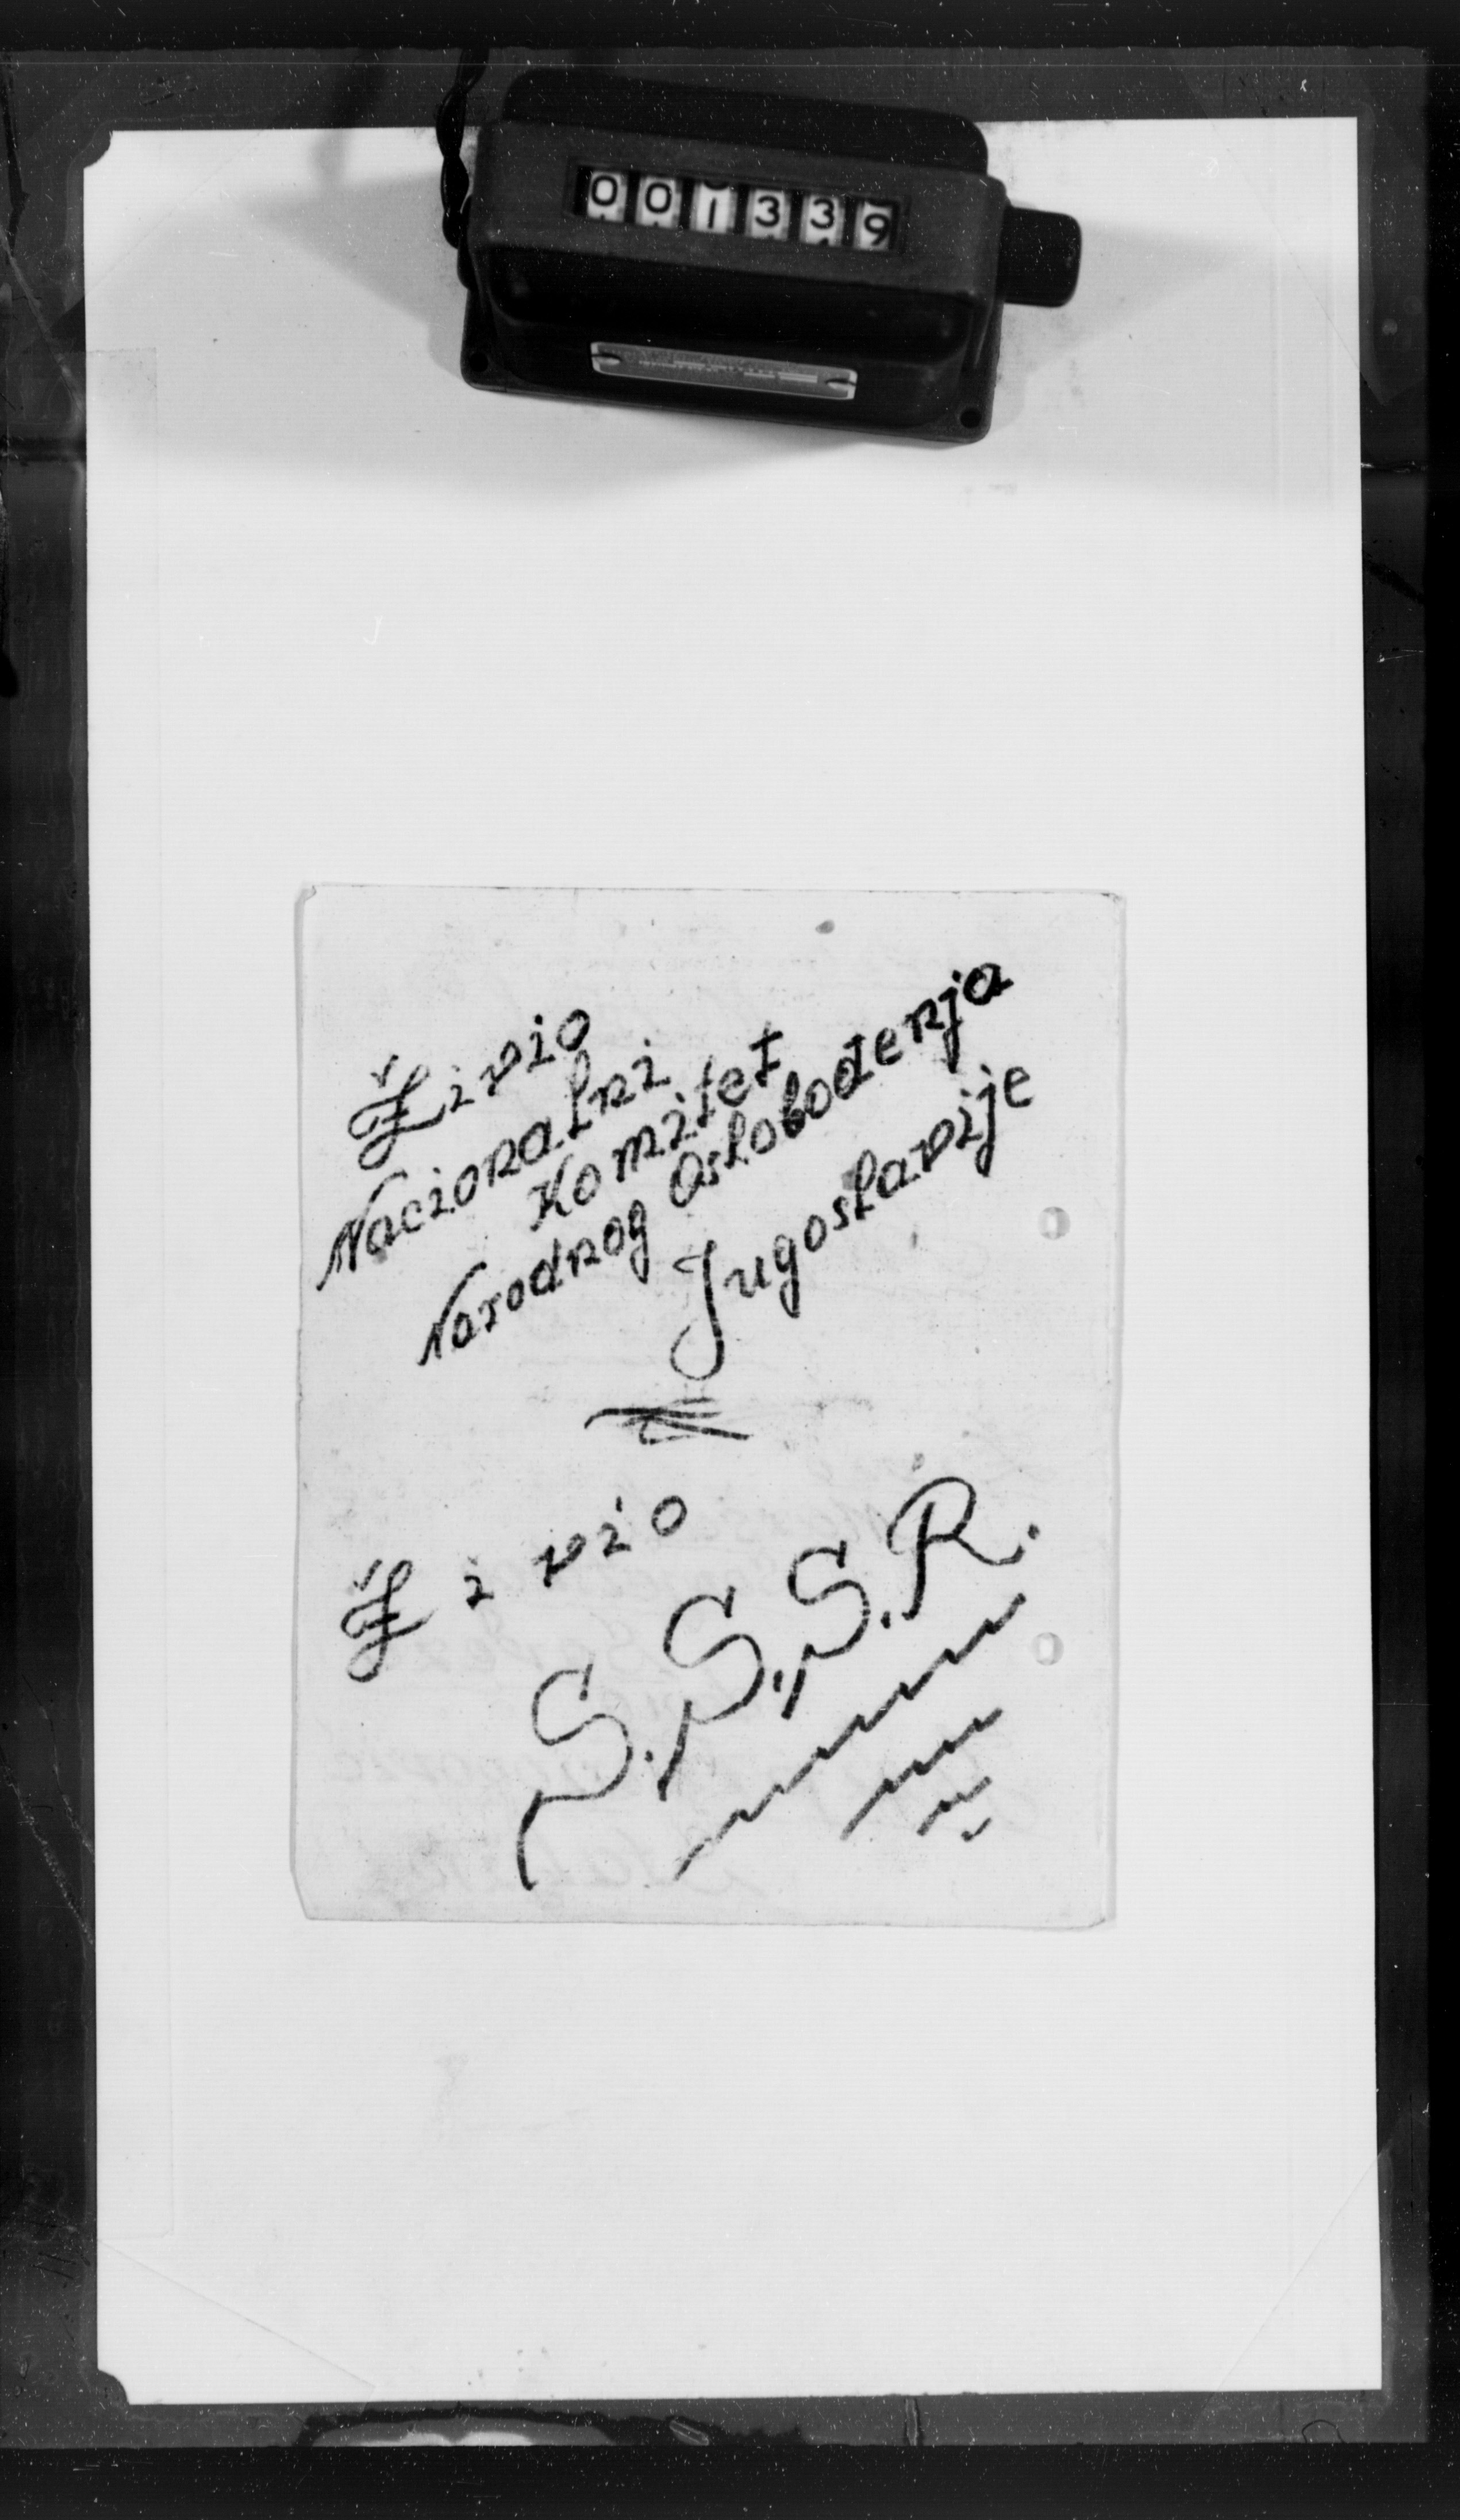 001339
Živio
Nacionalni
Komitet
Narodnog Oslobođenja
Jugoslavije
Živio
S.S.S.R.